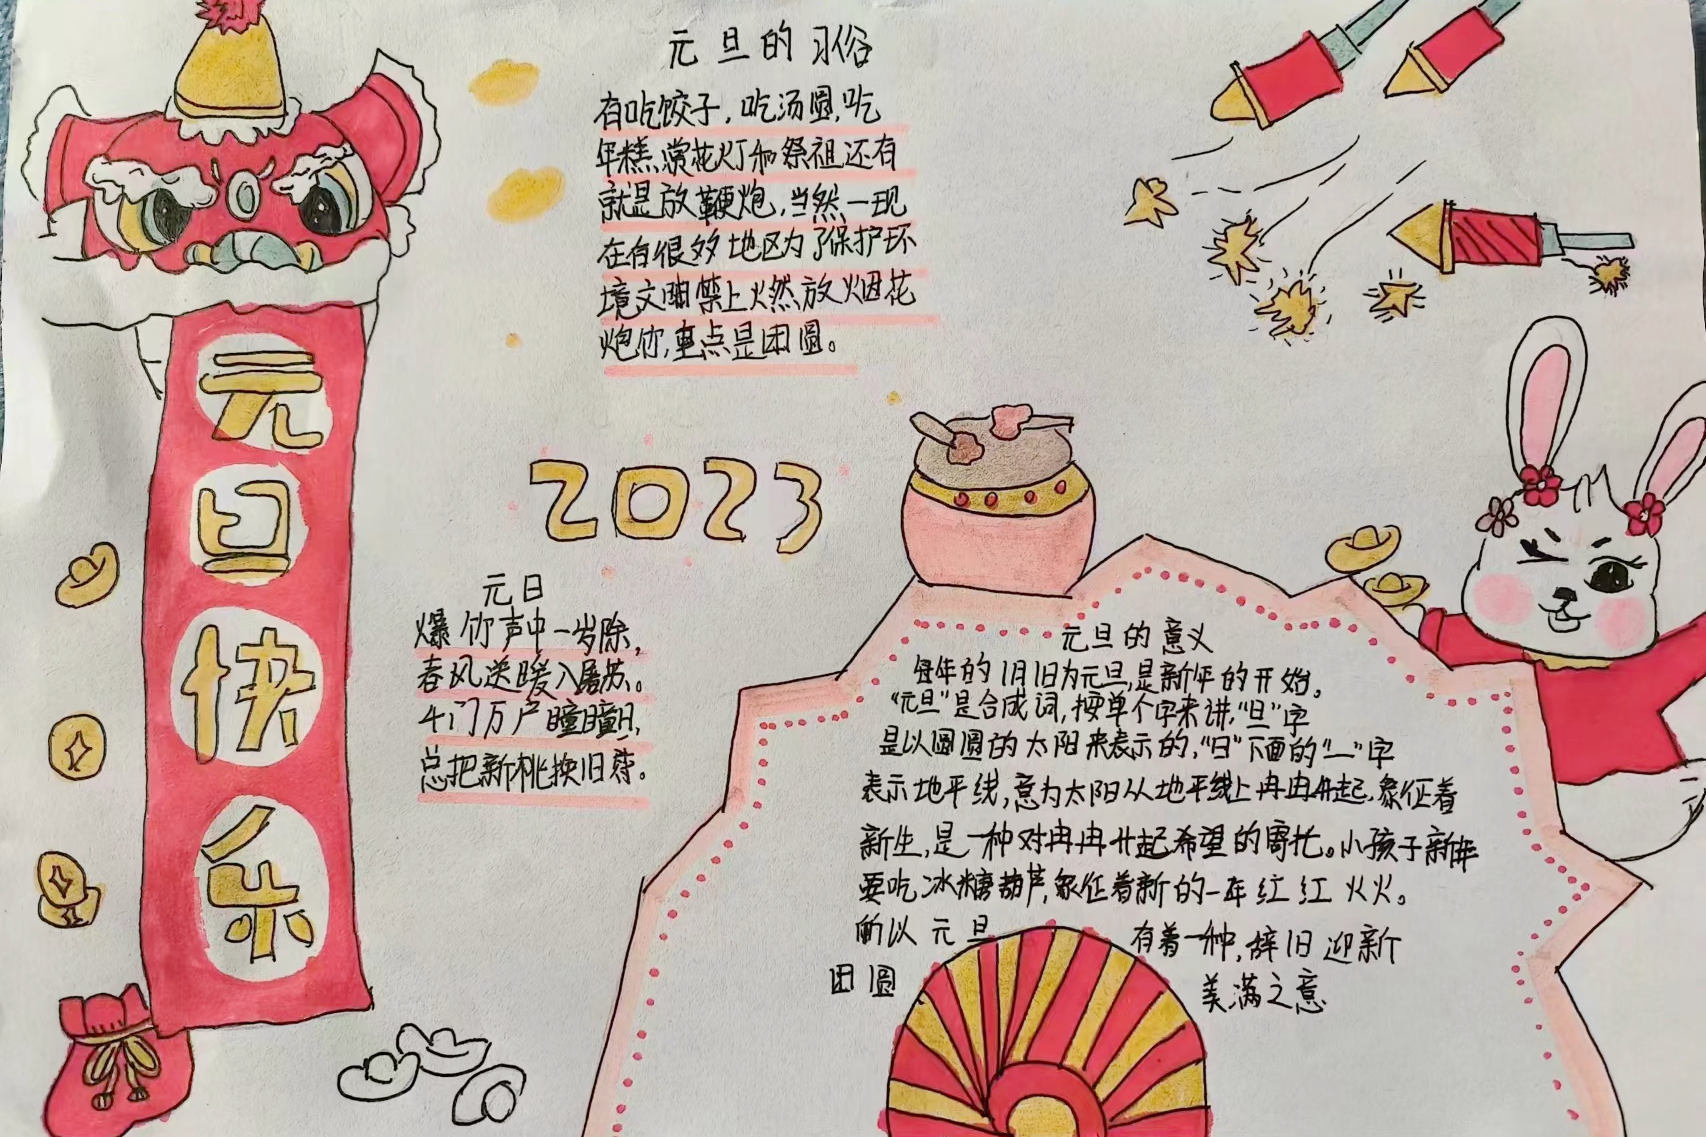 元旦快乐
元旦的习俗
有吃饺子，吃汤圆，吃
年糕、赏花灯和祭祖还有
就是放鞭炮，当然，一现
在有很多地区为了保护环
境文明禁上燃放烟花
炮竹，重点是团圆。
2023
元日
爆竹声中一岁除，
春风送暖入屠苏。
千门万户瞳瞳日，
总把新桃换旧符。
元旦的意义
每年的1月1日为元旦，是新年的开始。
“元旦”是合成词，按单个字来讲，“旦”字
是以圆圆的太阳来表示的，“日”下面的“一”字
表示地平线，意为太阳从地平线上冉冉升起，象征着
新生，是一种对冉冉升起希望的寄托。小孩子新年
要吃冰糖葫芦，象征着新的一年红红火火。
所以元旦 有着一种，辞旧迎新
团圆 美满之意